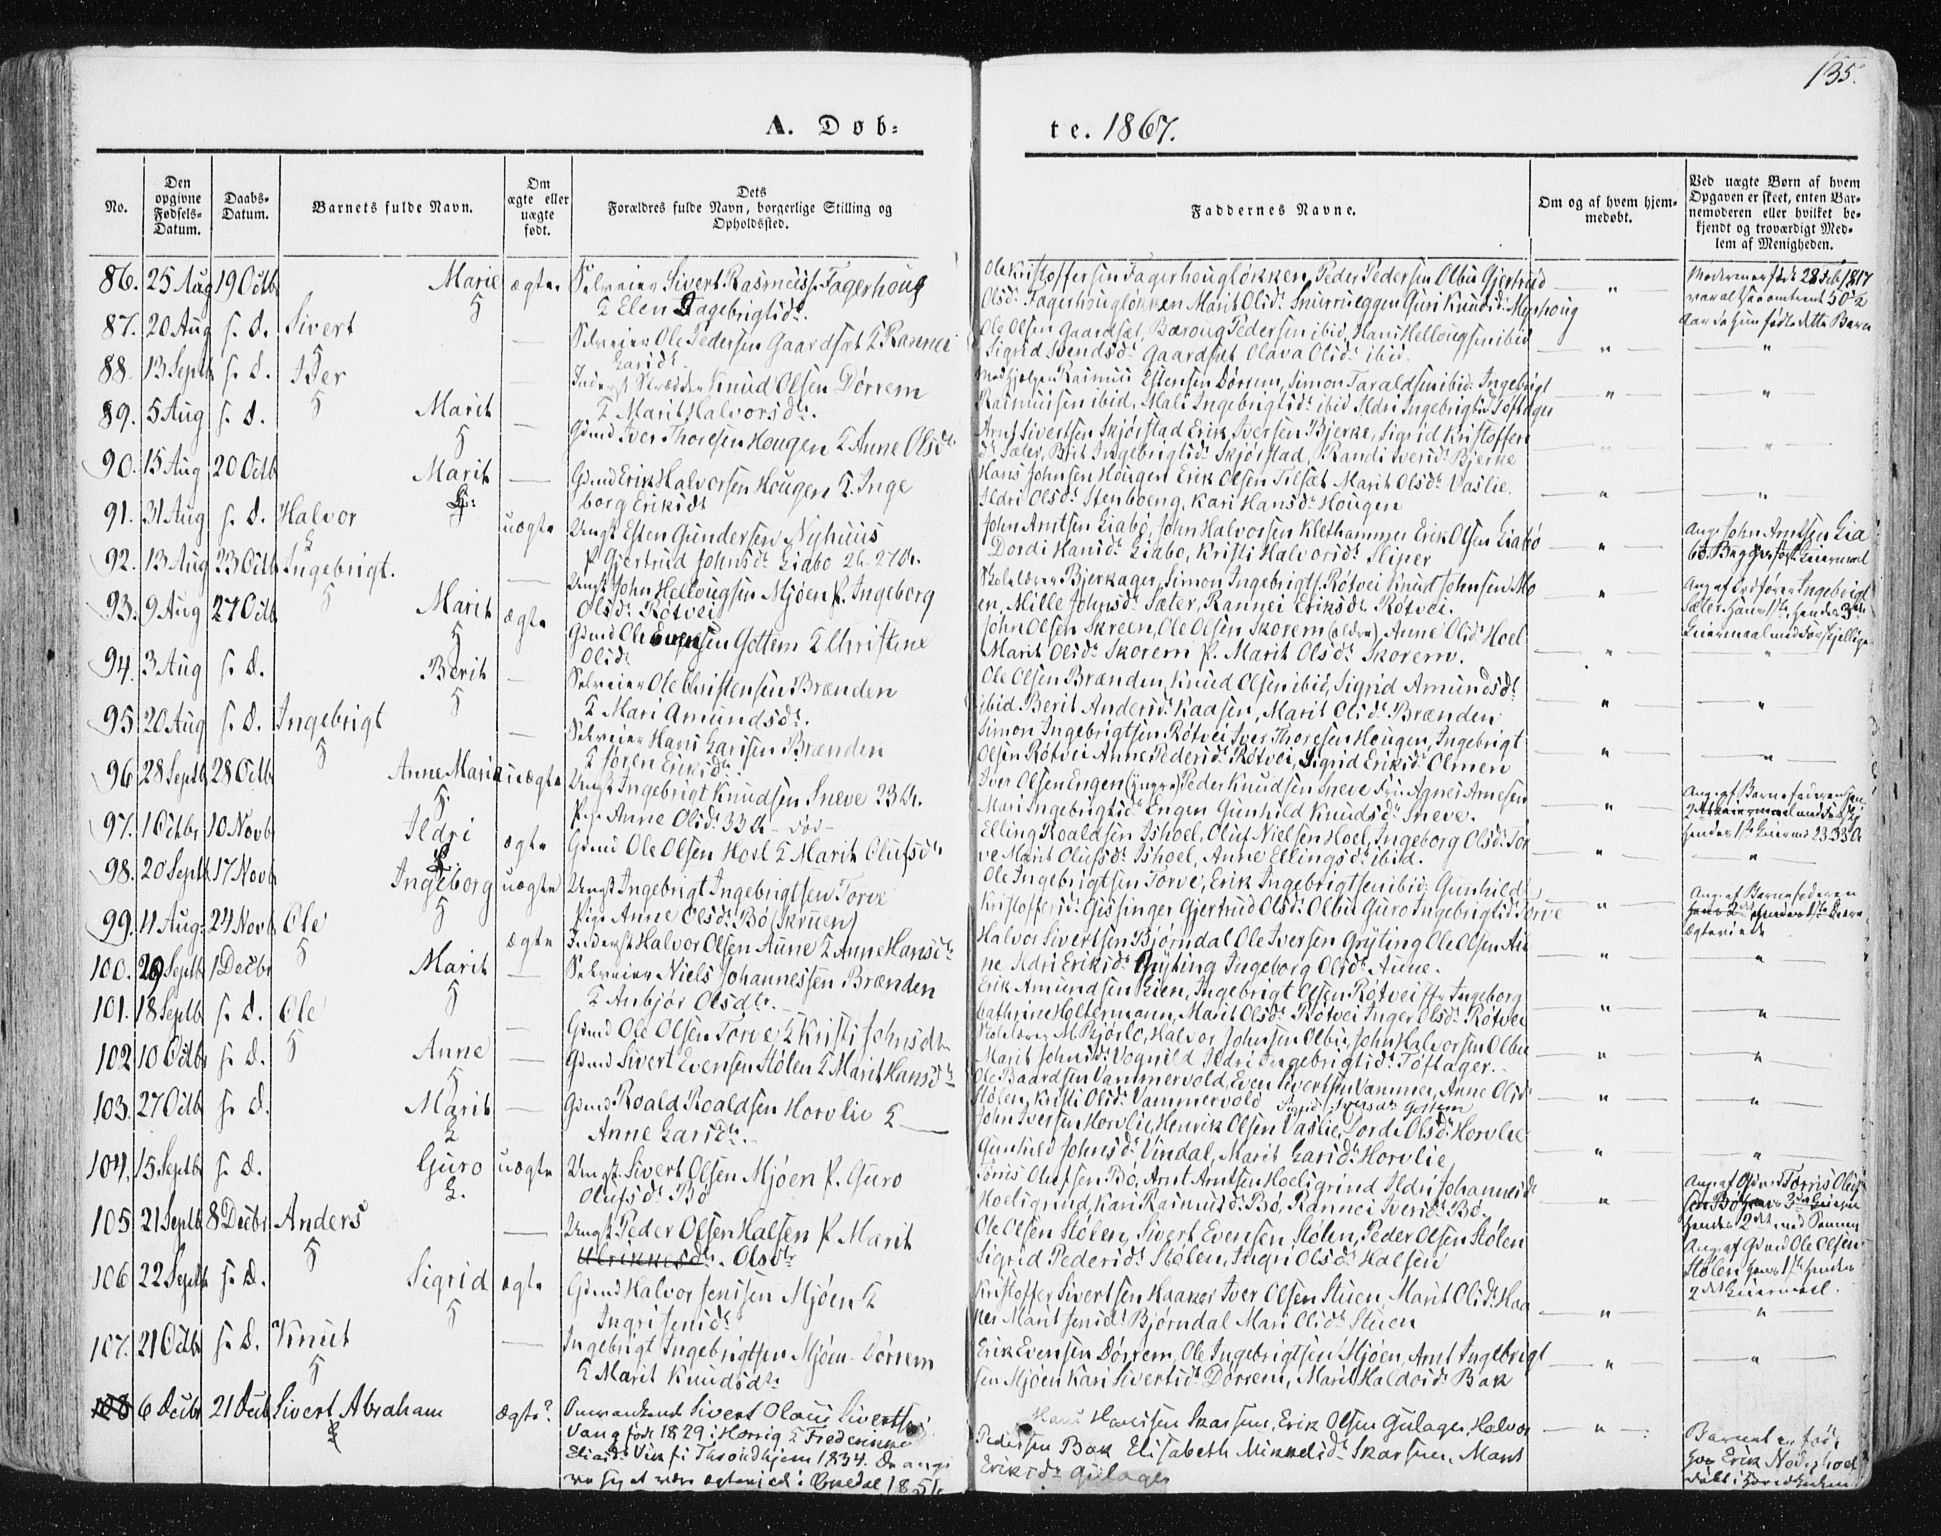 135.
A. Døb=
te. 1867.
No.
Den opgivne Fødsels-Datum.
Daabs-Datum.
Barnets fulde Navn.
Om ægte eller uægte født.
Dets Forældres fulde Navn, borgerlige Stilling og Opholdssted.
Faddernes Navne.
Om og af hvem hjemmedøbt.
Ved uægte Børn af hvem Opgaven er skeet, enten Barnemoderen eller hvilket bekjendt og troværdigt Medlem af Menigheden.
86. 25 Aug 19 Octb Marie ægte. Selveier Sivert Rasmuss. Fagerhoug
Elen Ingebrigtsd.
Ole Kristoffersen Fagerhougløkken, Peder Pedersen Olbu Gjertrud
Olsd. Fagerhougløkken Marit Olsd. Snurrueggen Guri Knudsd. Myrhoug
87. 20 Aug s. d. Sivert — Selveier Ole Pedersen Gaardsæt
Larsd.
Ole Olsen Gaardsæt, Baroug Pedersen ibid, Hans Hellougsen ibid
Sigrid Svendsd. Gaardsæt Olava Olsd. ibid.
88. 13 Septb s. d. Iver — Knud Olsen Dørrem
Marit Halvorsd.
Rasmus Estensen Dørrem, Simon Taraldsen ibid. Ingebrigt
Rasmussen ibid, Mali Ingebrigtsd. ibid Ildri Ingebrigtsd. Tøftager
89. 5 Aug s. d. Marit — Gbmd Iver Thoresen Hougen & Anne Olsd.
Arnt Sivertsen Skjørstad Erik Iversen Bjerke, Sigrid Kristoffers
d. Sæter, Brit Ingebrigtsd. Skjørstad, Randi Iversd. Bjerke
90. 15 Aug 20 Octb Marit — Gbmd Erik Halvorsen Hougen & Inge
borg Eriksdt
Hans Johnsen Hougen Erik Olsen Tilsæt Marit Olsd. Vaslie.
Ildri Olsd. Stenboeng, Kari Hansd. Hougen
91. 31 Aug s. d. Halvor uægte Ungk Esten Gundersen Nyhuus
P. Gjertrud Johnsd. Liabø 26-27 Ar.
John Arntsen Liabø, John Halvorsen Klethammer Erik Olsen Liabø
Dordi Hansd. Liabø, Kristi Halvorsd. Sliper
Ang. John Arntsen Lia
92. 13 Aug 23 Octb Ingebrigt. — Ungk John Hellougsen Mjøen P. Ingeborg
Olsd. Røtvei
Skolelærer Bjerkager, Simon Ingebrigts. Røtvei Knut Johnsen Mo
en, Mille Johnsd. Sæter, Rannei Eriksd. Røtvei.
93. 9 Aug 27 Octb Marit ægte Gbmd Ole Evensen Gottem & Christine
Olsd.
John Olsen Skreen, Ole Olsen Skorem (ældre), Anne Olsd. Hoel
Marit Olsd. Skorem P. Marit Olsd. Skorem.
94. 3 Aug s. d. Berit — Selveier Ole Christensen Brænden
& Mari Amundsd.
Ole Olsen Brænden, Knud Olsen ibid, Sigrid Amundsd.
ibid Berit Andersd. Kaasen, Marit Olsd. Brænden
95. 20 Aug s. d. Ingebrigt — Selveier Hans Larssen Brænden
Eriksd.
Simon Ingebrigtsen Røtvei Iver Thoresen Hougen, Ingebrigt
Olsen Røtvei Anne Pedersd. Røtvei, Sigrid Eriksd. Olmen
96. 28 Septb 28 Octb Anne Maria uægte Ungk Ingebrigt Knudsen Sneve 23 Ar.
Pige Anne Olsd. 33 Ar
Iver Olsen Engen (yngre) Peder Knudsen Sneve Agnes Arnesen
Mari Ingebrigtsd. Engen Gunhild Knudsd. Sneve.
97. 1 Octbr 10 Novb Ildri ægte Gbmd Ole Olsen Hoel & Marit Olufsd.
Elling Roaldsen Ishoel, Oluf Nielsen Hoel, Ingeborg Olsd. Tor
ve Marit Olufsd. Ishoel, Anne Ellingsd. ibid.
98. 20 Septb 17 Novb Ingeborg uægte Ungk Ingebrigt Ingebrigtsen Torve
Pige Anne Olsd. Bø (Skruen)
Ole Ingebrigtsen Torve, Erik Ingebrigtsen ibid. Gunhild
Kristoffersd. Gissinger Gjertrud Olsd. Olbu Guro Ingebrigtsd. Torve
Ang. af Barnefaderen
99. 11 Aug. 24 Novb. Ole ægte Inderst Halvor Olsen Aune & Anne Hansd.
Halvor Sivertsen Bjørndal Ole Iversen Gryting Ole Olsen Au
ne Ildri Eriksd. Gryting Ingeborg Olsd. Aune.
100. 29 Septb 1 Decbr Marit — Selveier Niels Johannessen Brænden
& Anbjør Olsdtr.
Erik Amundsen Lien, Ingebrigt Olsen Røtvei Ingeborg
Cathrine Holtermann, Marit Olsd. Røtvei Inger Olsd. Røtvei
101. 18 Septb s. d. Ole — Gbmd Ole Olsen Torve, & Kristi Johnsdtr
Skolelærer M. Bjørlo, Halvor Johnsen Olbu, John Halvorsen Olbu
Marit Johnsd. Vognild Ildri Ingebrigtsd. Tøftager.
102 10 Octb s. d. Anne — Gbmd Sivert Evensen Stølen & Marit Hansd.
Ole Baardsen Vammervold, Even Sivertsen Vammer, Anne Olsd.
Stølen, Kristi Olsd. Vammervold Sigrid Iversdt. Gottem
103. 27 Octb s. d. Marit — Gbmd Roald Roaldsen Horvlie & —
Anne Larsdtr.
John Iversen Horvlie, Henrik Olsen Vaslie, Dordi Olsd. Horvlie
Gunhild Johnsd. Vindal, Marit Larsd. Horvlie
104. 15 Septb s. d. Guro uægte Ungk. Sivert Olsen Mjøen P. Guro
Olufsd. Bø
Tørris Olufsen Bø, Arnt Arntsen Hoelsgrind Ildri Johannesd.
Hoelsgrind, Kari Rasmusd. Bø, Rannei Iversd. Bø.
Ang. af Gbmd Tørris Oluf
105 21 Septb 8 Decbr Anders — Ungk Peder Olsen Halsen P. Marit
Ulrikkesd. Olsdtr
Ole Olsen Stølen, Sivert Evensen Stølen, Peder Olsen Stølen
Sigrid Pedersd. Stølen, Ingri Olsd. Halsen
Ang. af Gbmd Ole Olsen
Stølen hans 1ste hendes
2det Leiermaal.
106 22 Septb s. d. Sigrid ægte Gbmd Halvor Jenssen Mjøen &
Ingri Jensd.
Kristoffer Sivertsen Haaker Iver Olsen Stuen, Marit Olsd. Haa
ker Marit Jensd. Bjørndal Mari Olsd. Stuen
107. 21 Octb s. d. Knut — Ingebrigt Ingebrigtsen Mjøen - Dørrem
& Marit Knudsdtr
Erik Evensen Dørrem, Ole Ingebrigtsen Mjøen, Arnt Ingebrigt
sen Mjøen Kari Sivertsd. Dørrem, Marit Haldosd. Bak
108 6 Decbr 21 Decb Sivert Abraham Ægte? Omvankende Sivert Olaus Sivertsen
Vang født 1829 i Horrig & Frederikke
Eliasd. Vik f. i Throndhjem 1834. De angi
ve sig at være ægteviede i Ørkedal 1851.
Hans Hansen Skarsem, Erik Olsen Gulager, Halvor
Pedersen Bak Elisabeth Mikkelsd. Skarsem, Marit
Eriksd. Gulager
Barnet er født
hos Erik Nordishoel